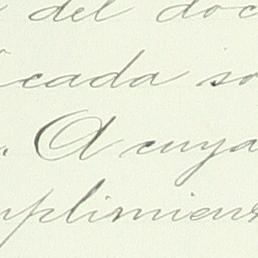 del doc
cada so
A cuya
mplimien